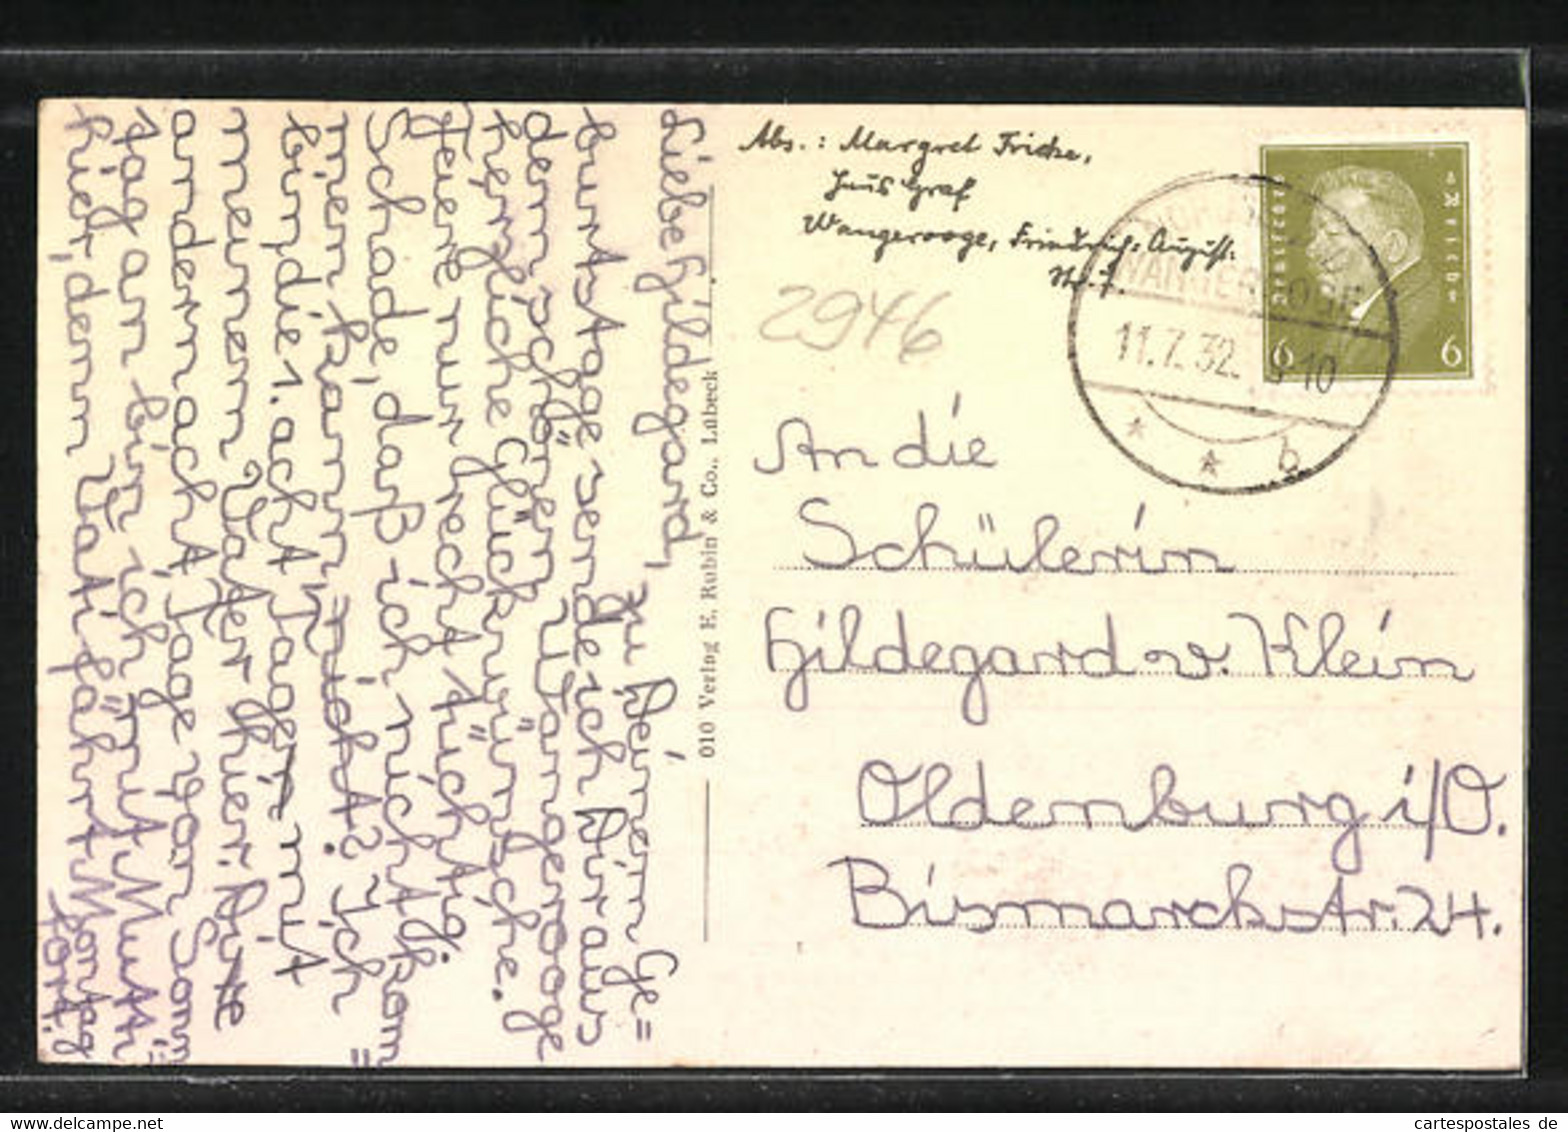 Liebe Hildegard,
zu Deinem Ge=
burtstage sende ich Dir aus
dem schönen Wangerooge
herzliche Glückwünsche.
Feiere nur recht tüchtig.
Schade, daß ich nicht kom=
men kann, nicht? Ich
bin die 1. acht Tage mit
meinem Vater hier. Die
andern acht Tage von Sonn=
tag an bin ich mit Mutti
hier, denn Vati fährt Montag
fort.
010 Verlag E. Rubin & Co., Lübeck
Abs.: Margret Fricke,
Haus Graf
Wangerooge, Friedrich-August-
Str. 7.
2946
Deutsches Reich
6 6
WANGEROOGE
11.7.32. 9-10
* * b
An die
Schülerin
Hildegard v. Klein
Oldenburg i/O.
Bismarckstr. 24.
cartespostales de